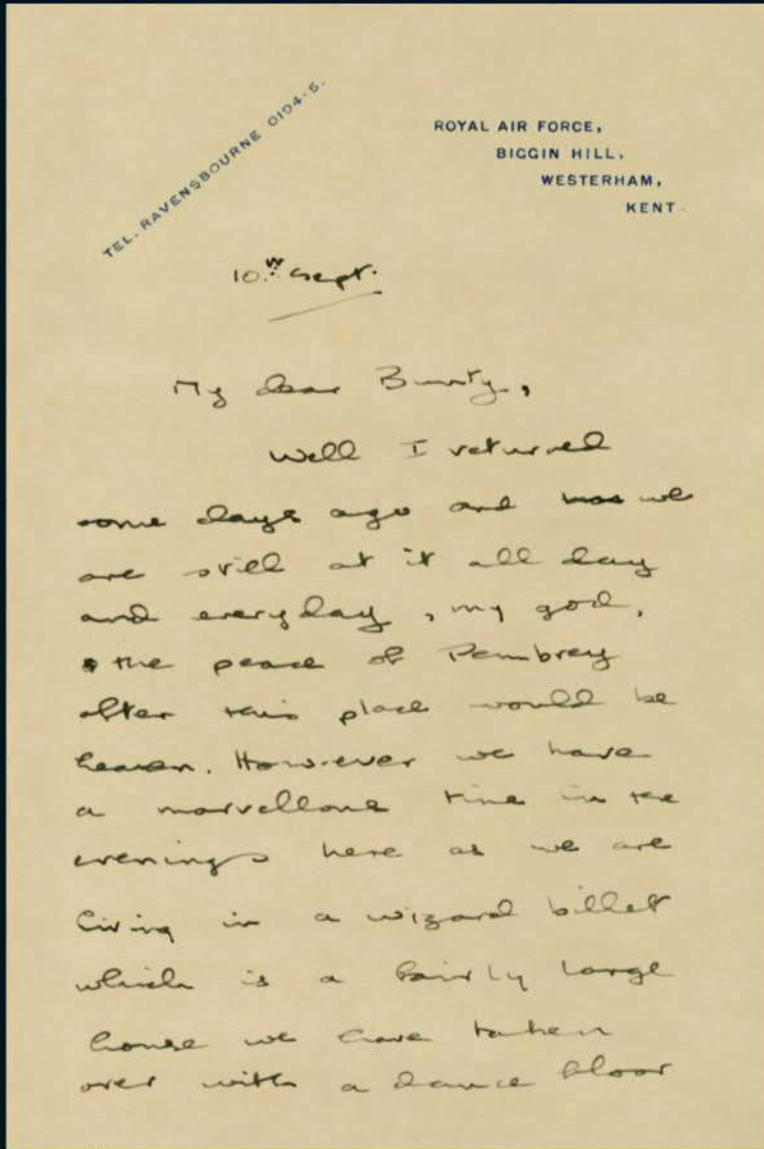 TEL. RAVENSBOURNE 0194-5.
ROYAL AIR FORCE,
BIGGIN HILL,
WESTERHAM,
KENT.
10th Sept.
My dear Bunty,
Well I returned
some days ago and we
are still at it all day
and everyday, my god,
the peace of Pembrey
after this place would be
heaven. However we have
a marvellous time in the
evenings here as we are
living in a wizard billet
which is a fairly large
house we have taken
over with a dance floor